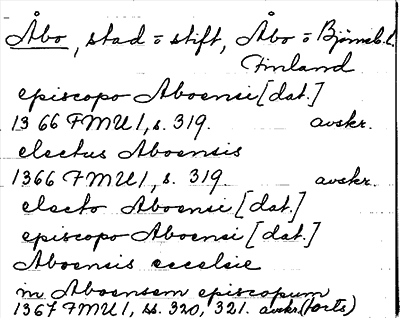 Åbo, stad o stift, Åbo o Björneb. l.
Finland
episcopo Aboensi [dat.]
1366 FMU 1, s. 319. avskr.
electus Aboensis
1366 FMU 1, s. 319. avskr.
electo Aboensi [dat.]
episcopo Aboensi [dat.]
Aboensis ecclesie
in Aboensem episcopum
1367 FMU 1, ss. 320, 321. avskr. (forts)